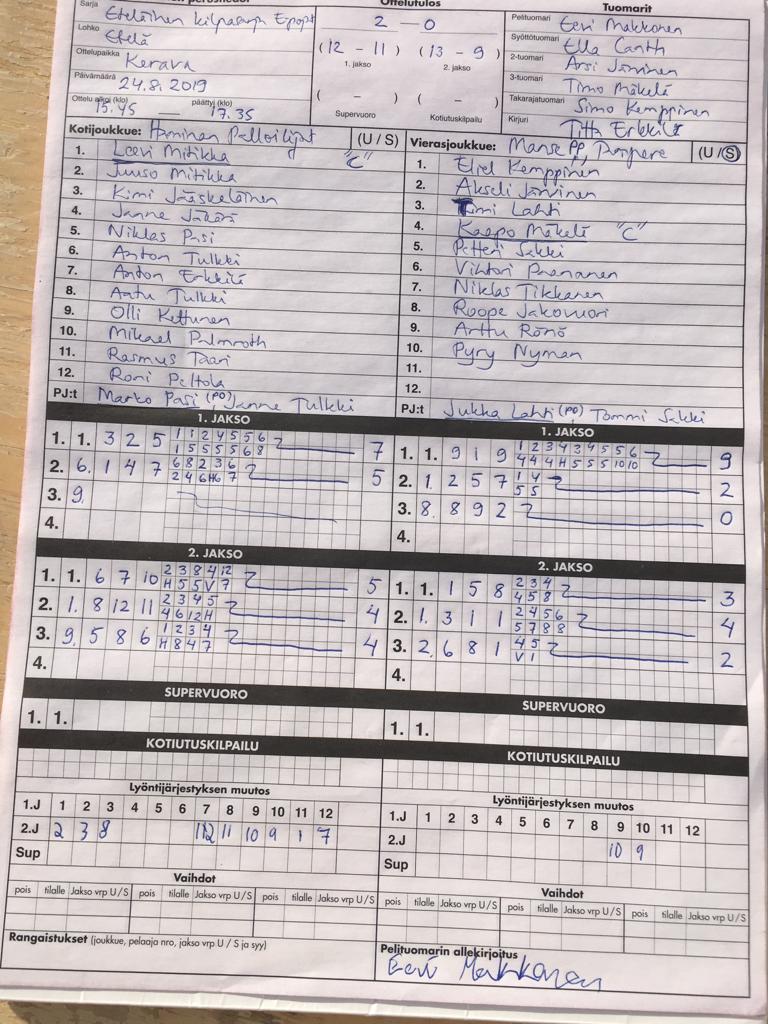 Sarja Eteläinen kilpasarja
Lohko Etelä
Ottelupaikka Kerava
Päivämäärä 24.8.2019
Ottelu alkoi (klo) 15.45 päättyi (klo) 17.35
Ottelutulos
2 - 0
(12 - 11) (13 - 9)
1. jakso 2. jakso
( - ) ( - )
Supervuoro Kotiutuskilpailu
Tuomarit
Pelituomari Eevi Makkonen
Syöttötuomari Ella Canth
2-tuomari Arsi Järvinen
3-tuomari Timo Mäkelä
Takarajatuomari Simo Kemppinen
Kirjuri Titta Erkkilä
Kotijoukkue: Haminan Palloilijat (U / S)
1. Leevi Mitikka "C"
2. Juuso Mitikka
3. Kimi Jääskeläinen
4. Janne
5. Niklas Pasi
6. Anton Tulkki
7. Anton Erkkilä
8. Aatu Tulkki
9. Olli Kettunen
10. Mikael Palmroth
11. Rasmus Taari
12. Roni Peltola
PJ:t Marko Pasi (PO), Janne Tulkki
Vierasjoukkue: Manse PP, Tampere (U / S)
1. Eliel Kemppinen
2. Akseli Järvinen
3. Tomi Lahti
4. Kaapo Mäkelä "C"
5. Petteri Sakki
6. Vihtori Paananen
7. Niklas Tikkanen
8. Roope Jakovuori
9. Arttu Rönö
10. Pyry Nyman
11.
12.
PJ:t Jukka Lahti (PO) Tommi Sakki
1. JAKSO
1. 1. 3 2 5 1 1 2 4 5 5 6 7
1 5 5 5 5 6 8
2. 6. 1 4 7 6 8 2 3 6 5
2 4 6 H6 7
3. 9.
4.
1. JAKSO
1. 1. 9 1 9 1 2 3 4 3 4 5 5 6 9
4 4 4 H 5 5 5 10 10
2. 1. 2 5 7 1 4 2
5 5
3. 8. 8 9 2 0
4.
2. JAKSO
1. 1. 6 7 10 2 3 8 4 12 5
H 5 5 V 7
2. 1. 8 12 11 2 3 4 5 4
4 6 12 H
3. 9. 5 8 6 1 2 3 4 4
H 8 4 7
4.
2. JAKSO
1. 1. 1 5 8 2 3 4 3
4 5 8
2. 1. 3 1 1 2 4 5 6 4
5 7 8 8
3. 2. 6 8 1 4 5 2
V 1
4.
SUPERVUORO
1. 1.
SUPERVUORO
1. 1.
KOTIUTUSKILPAILU
KOTIUTUSKILPAILU
Lyöntijärjestyksen muutos
1.J 1 2 3 4 5 6 7 8 9 10 11 12
2.J 2 3 8 12 11 10 9 1 7
Sup
Lyöntijärjestyksen muutos
1.J 1 2 3 4 5 6 7 8 9 10 11 12
2.J 10 9
Sup
Vaihdot
pois tilalle Jakso vrp U / S pois tilalle Jakso vrp U / S pois tilalle Jakso vrp U / S
Vaihdot
pois tilalle Jakso vrp U / S pois tilalle Jakso vrp U / S pois tilalle Jakso vrp U / S
Rangaistukset (joukkue, pelaaja nro, jakso vrp U / S ja syy)
Pelituomarin allekirjoitus
Eevi Makkonen